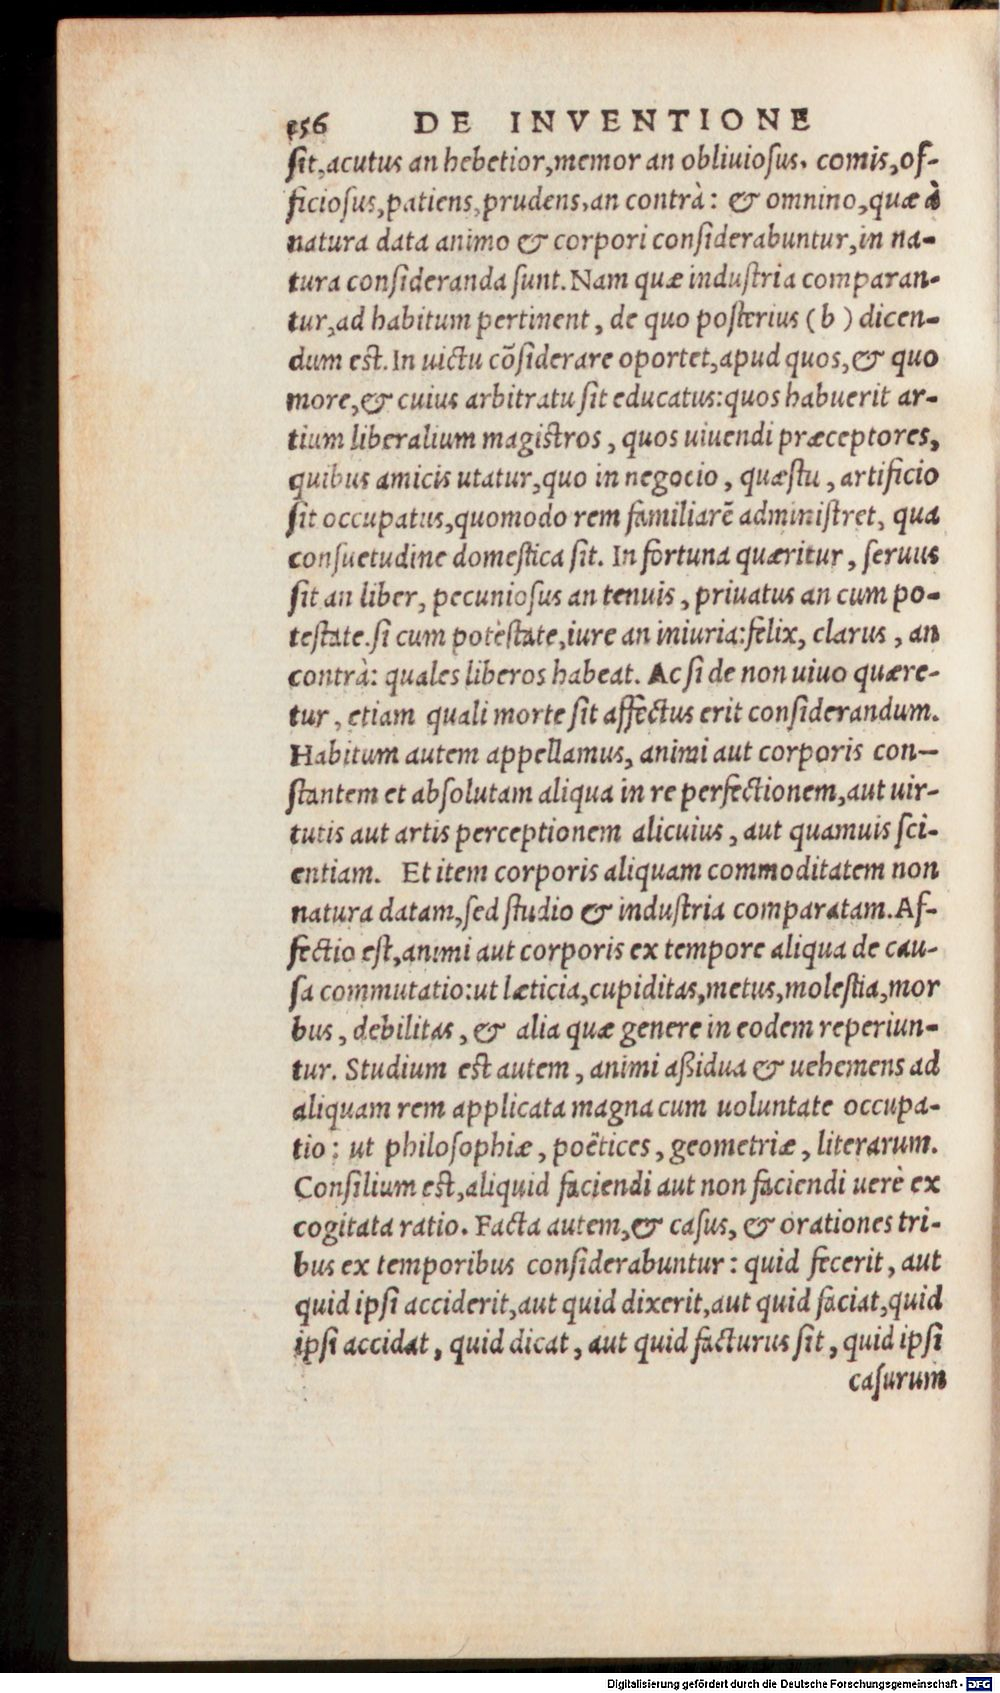 156 DE INVENTIONE
sit,acutus an hebetior,memor an obliuiosus, comis,of-
ficiosus,patiens,prudens,an contrà: & omnino,quæ à
natura data animo & corpori considerabuntur,in na-
tura consideranda sunt. Nam quæ industria comparan-
tur,ad habitum pertinent, de quo posterius (b) dicen-
dum est. In uictu cõsiderare oportet,apud quos,& quo
more,& cuius arbitratu sit educatus:quos habuerit ar-
tium liberalium magistros, quos uiuendi præceptores,
quibus amicis utatur,quo in negocio, quæstu, artificio
sit occupatus,quomodo rem familiarẽ administret, qua
consuetudine domestica sit. In fortuna quæritur, seruus
sit an liber, pecuniosus an tenuis, priuatus an cum po-
testate. si cum potestate,iure an iniuria:felix, clarus, an
contrà: quales liberos habeat. Ac si de non uiuo quære-
tur, etiam quali morte sit affectus erit considerandum.
Habitum autem appellamus, animi aut corporis con-
stantem et absolutam aliqua in re perfectionem,aut uir-
tutis aut artis perceptionem alicuius, aut quamuis sci-
entiam. Et item corporis aliquam commoditatem non
natura datam,sed studio & industria comparatam. Af-
fectio est,animi aut corporis ex tempore aliqua de cau-
sa commutatio:ut læticia,cupiditas,metus,molestia,mor
bus, debilitas, & alia quæ genere in eodem reperiun-
tur. Studium est autem, animi aßidua & uehemens ad
aliquam rem applicata magna cum uoluntate occupa-
tio: ut philosophiæ, poëtices, geometriæ, literarum.
Consilium est,aliquid faciendi aut non faciendi uerè ex
cogitata ratio. Facta autem,& casus, & orationes tri-
bus ex temporibus considerabuntur: quid fecerit, aut
quid ipsi acciderit,aut quid dixerit,aut quid faciat,quid
ipsi accidat, quid dicat, aut quid facturus sit, quid ipsi
casurum
Digitalisierung gefördert durch die Deutsche Forschungsgemeinschaft - DFG